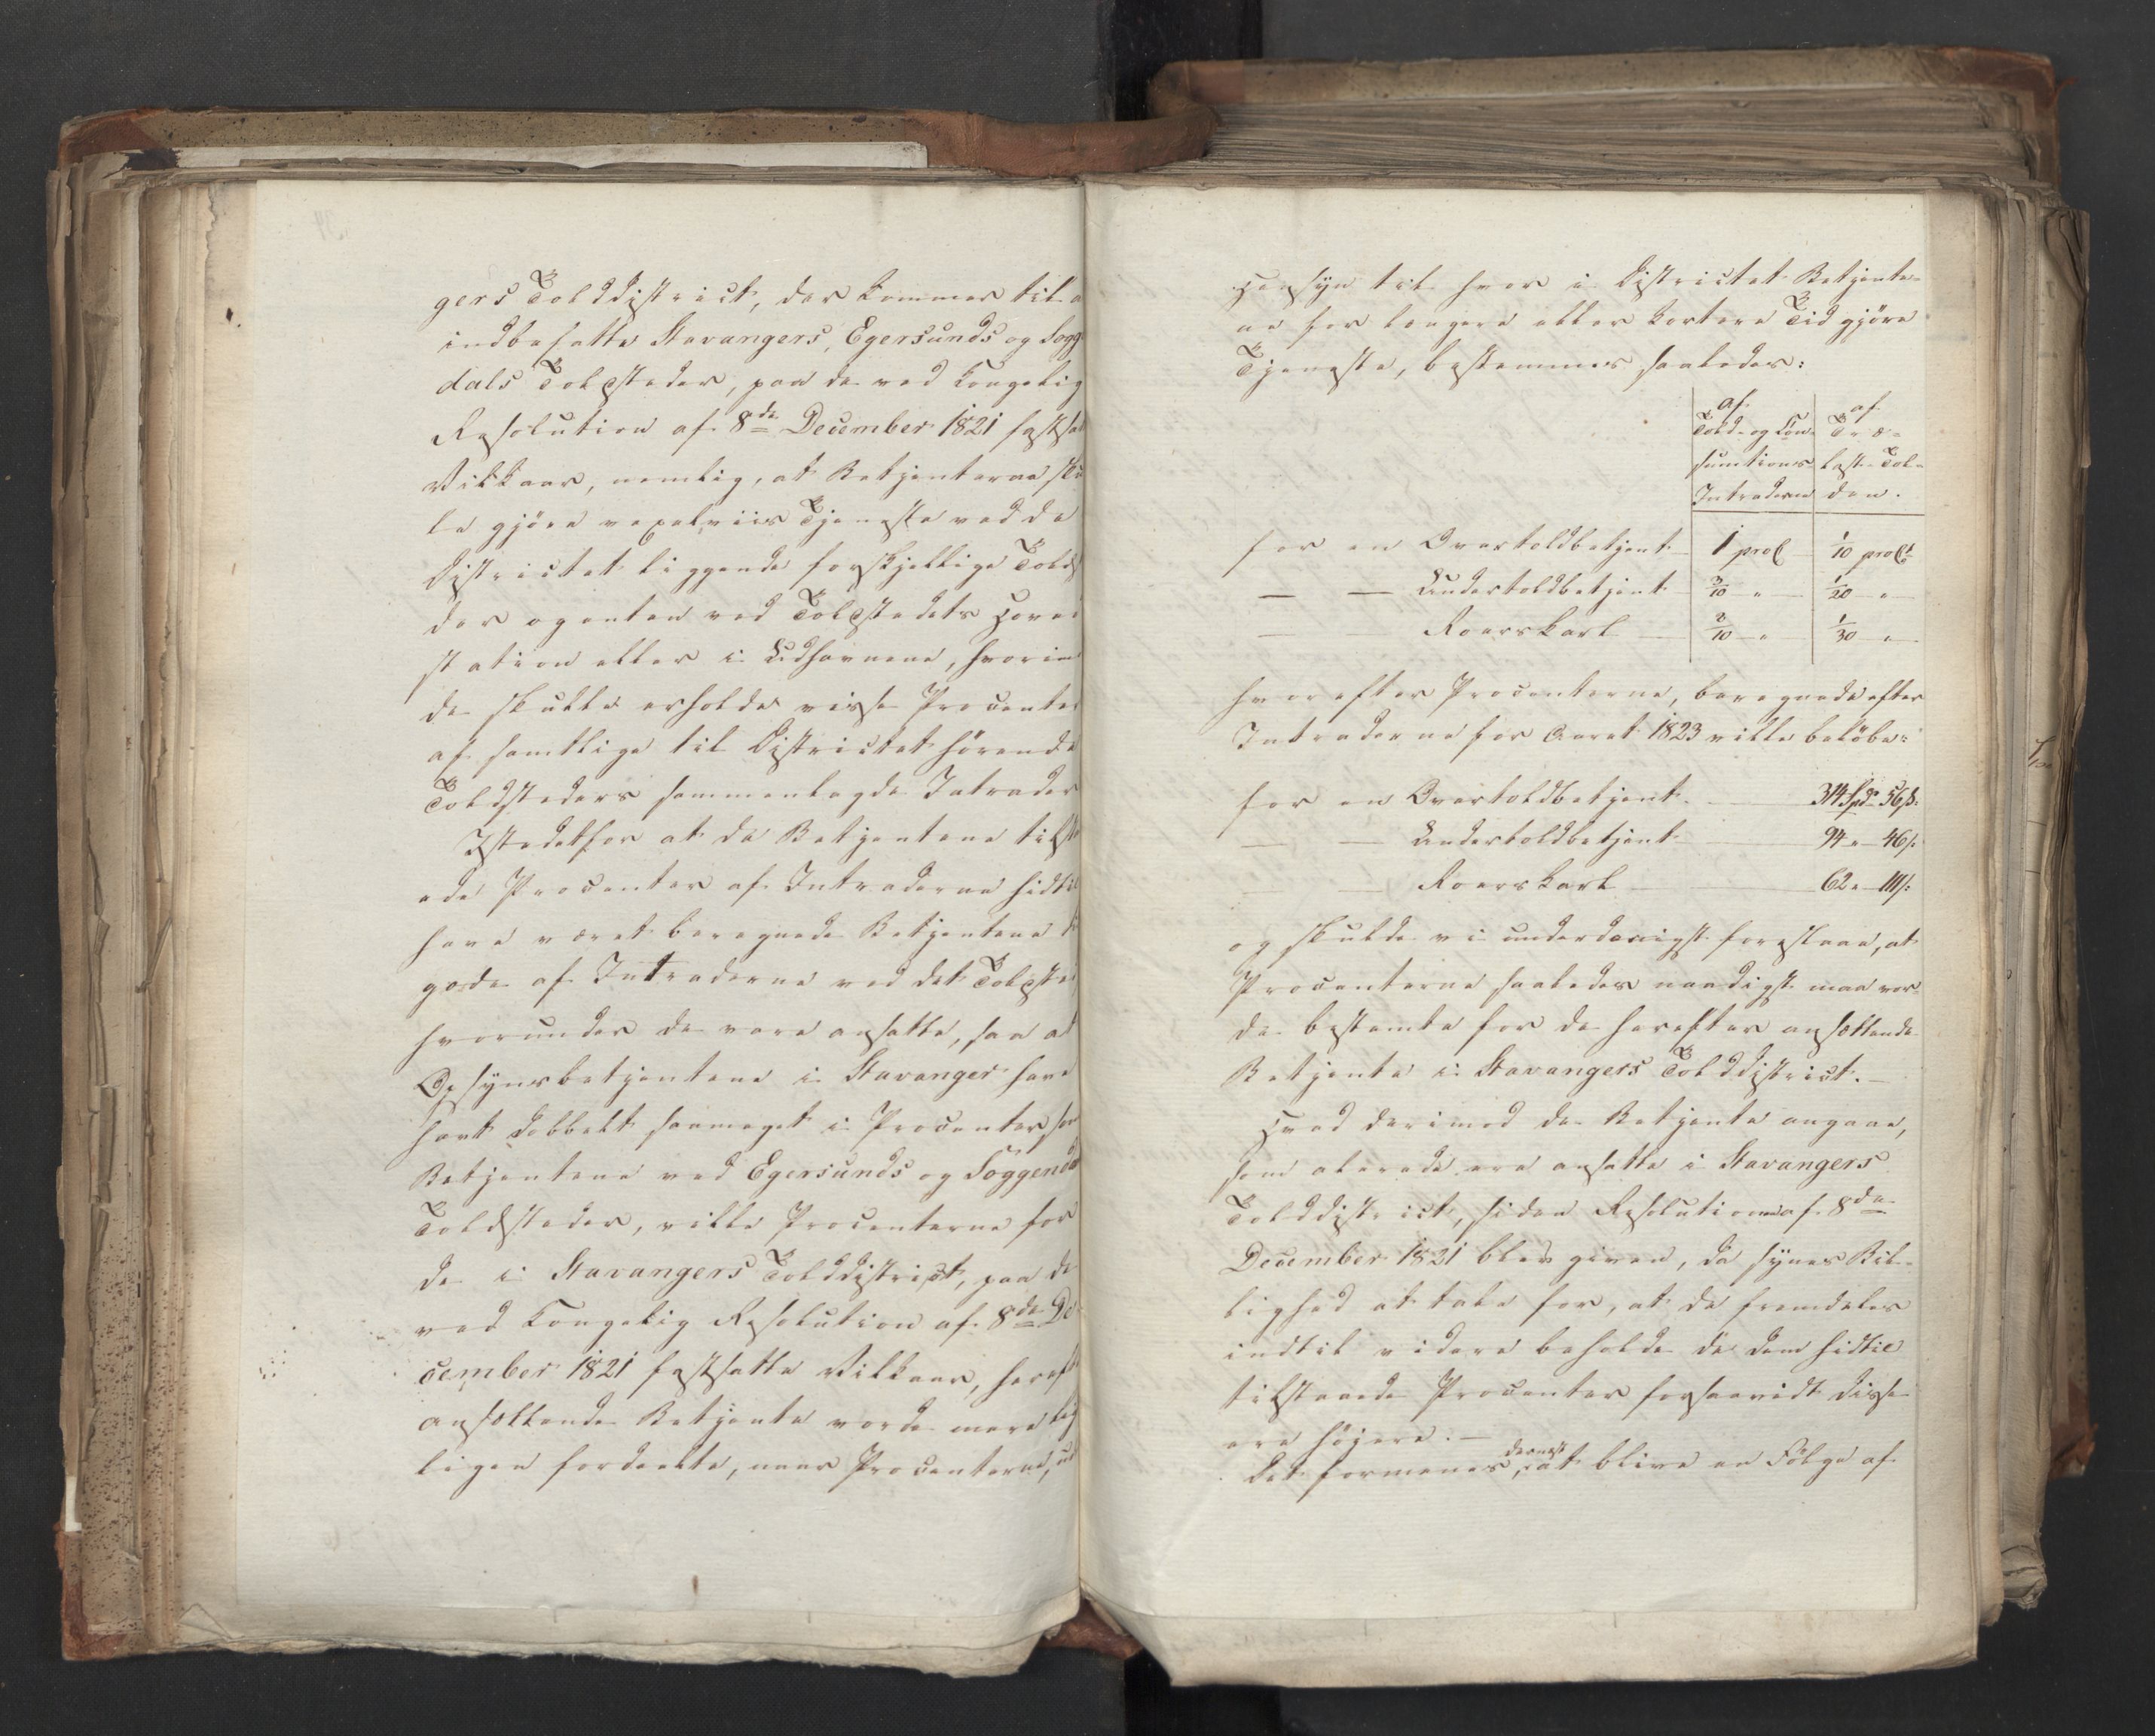 gers Tolddistrict, der kommer til a
indbefatte Stavangers, Egersunds og Sogg
dals Toldsteder, paa de ved Kongelig
Resolution af 8de December 1821 fastsat
Vilkaar, nemlig, at Betjenterne sku
le gjöre vexelviis Tjeneste ved de
Districtet liggende forskjellige Tolds
der og enten ved Toldstedets Hoved
station eller i Udhavnene, hvorimo
de skulle erholde visse Procenter
af samtlige til Districtet hörende
Toldsteders sammenlagde Intrader
Istedetfor at de Betjentene tilsta
ede Procenter af Intraderne hidtil
have været beregnede Betjentene til
gode af Intraderne ved det Toldsted
hvorunder de vare ansatte, saa at
Opsynsbetjentene i Stavanger have
havt dobbelt saameget i Procenter som
Betjentene ved Egersunds og Soggendal
Toldsteder, ville Procenterne for
de i Stavangers Tolddistrict, paa de
ved Kongelig Resolution af 8de De
cember 1821 fastsatte Vilkaar, herefte
ansættende Betjente vorde mere lig
ligen fordeelte, naar Procenterne, ud
Hensyn til hvor i Districtet Betjente-
ne for længere eller kortere Tid gjöre
Tjeneste, bestemmes saaledes:
af af
Told- og Con- Træ-
sumtions- last-Tol-
Intraderne den.
for en Overtoldbetjent 1 proC 1/10 proCt
— — Undertoldbetjent 3/10 " 1/20 "
— — Roerskarl 2/10 " 1/30 "
hvorefter Procenterne, beregnede efter
Intraderne for Aaret 1823 ville belöbe:
for en Overtoldbetjent 314 Spd 56 s.
— — Undertoldbetjent 94 " 46 s.
— — Roerskarl 62 " 111 s:
og skulde vi underdanigst foreslaae, at
Procenterne saaledes naadigst maa vor-
de bestemte for de herefter ansættende
Betjente i Stavangers Tolddistrict.—
Hvad derimod de Betjente angaae,
som allerede ere ansatte i Stavangers
Tolddistrict, siden Resolutionen af 8de
December 1821 blev given, da synes Bil-
lighed at tale for, at de fremdeles
indtil videre beholde de dem hidtil
tilstaaede Procenter forsaavidt disse
ere höjere.—
Det formenes, dernæst at blive en Fölge af